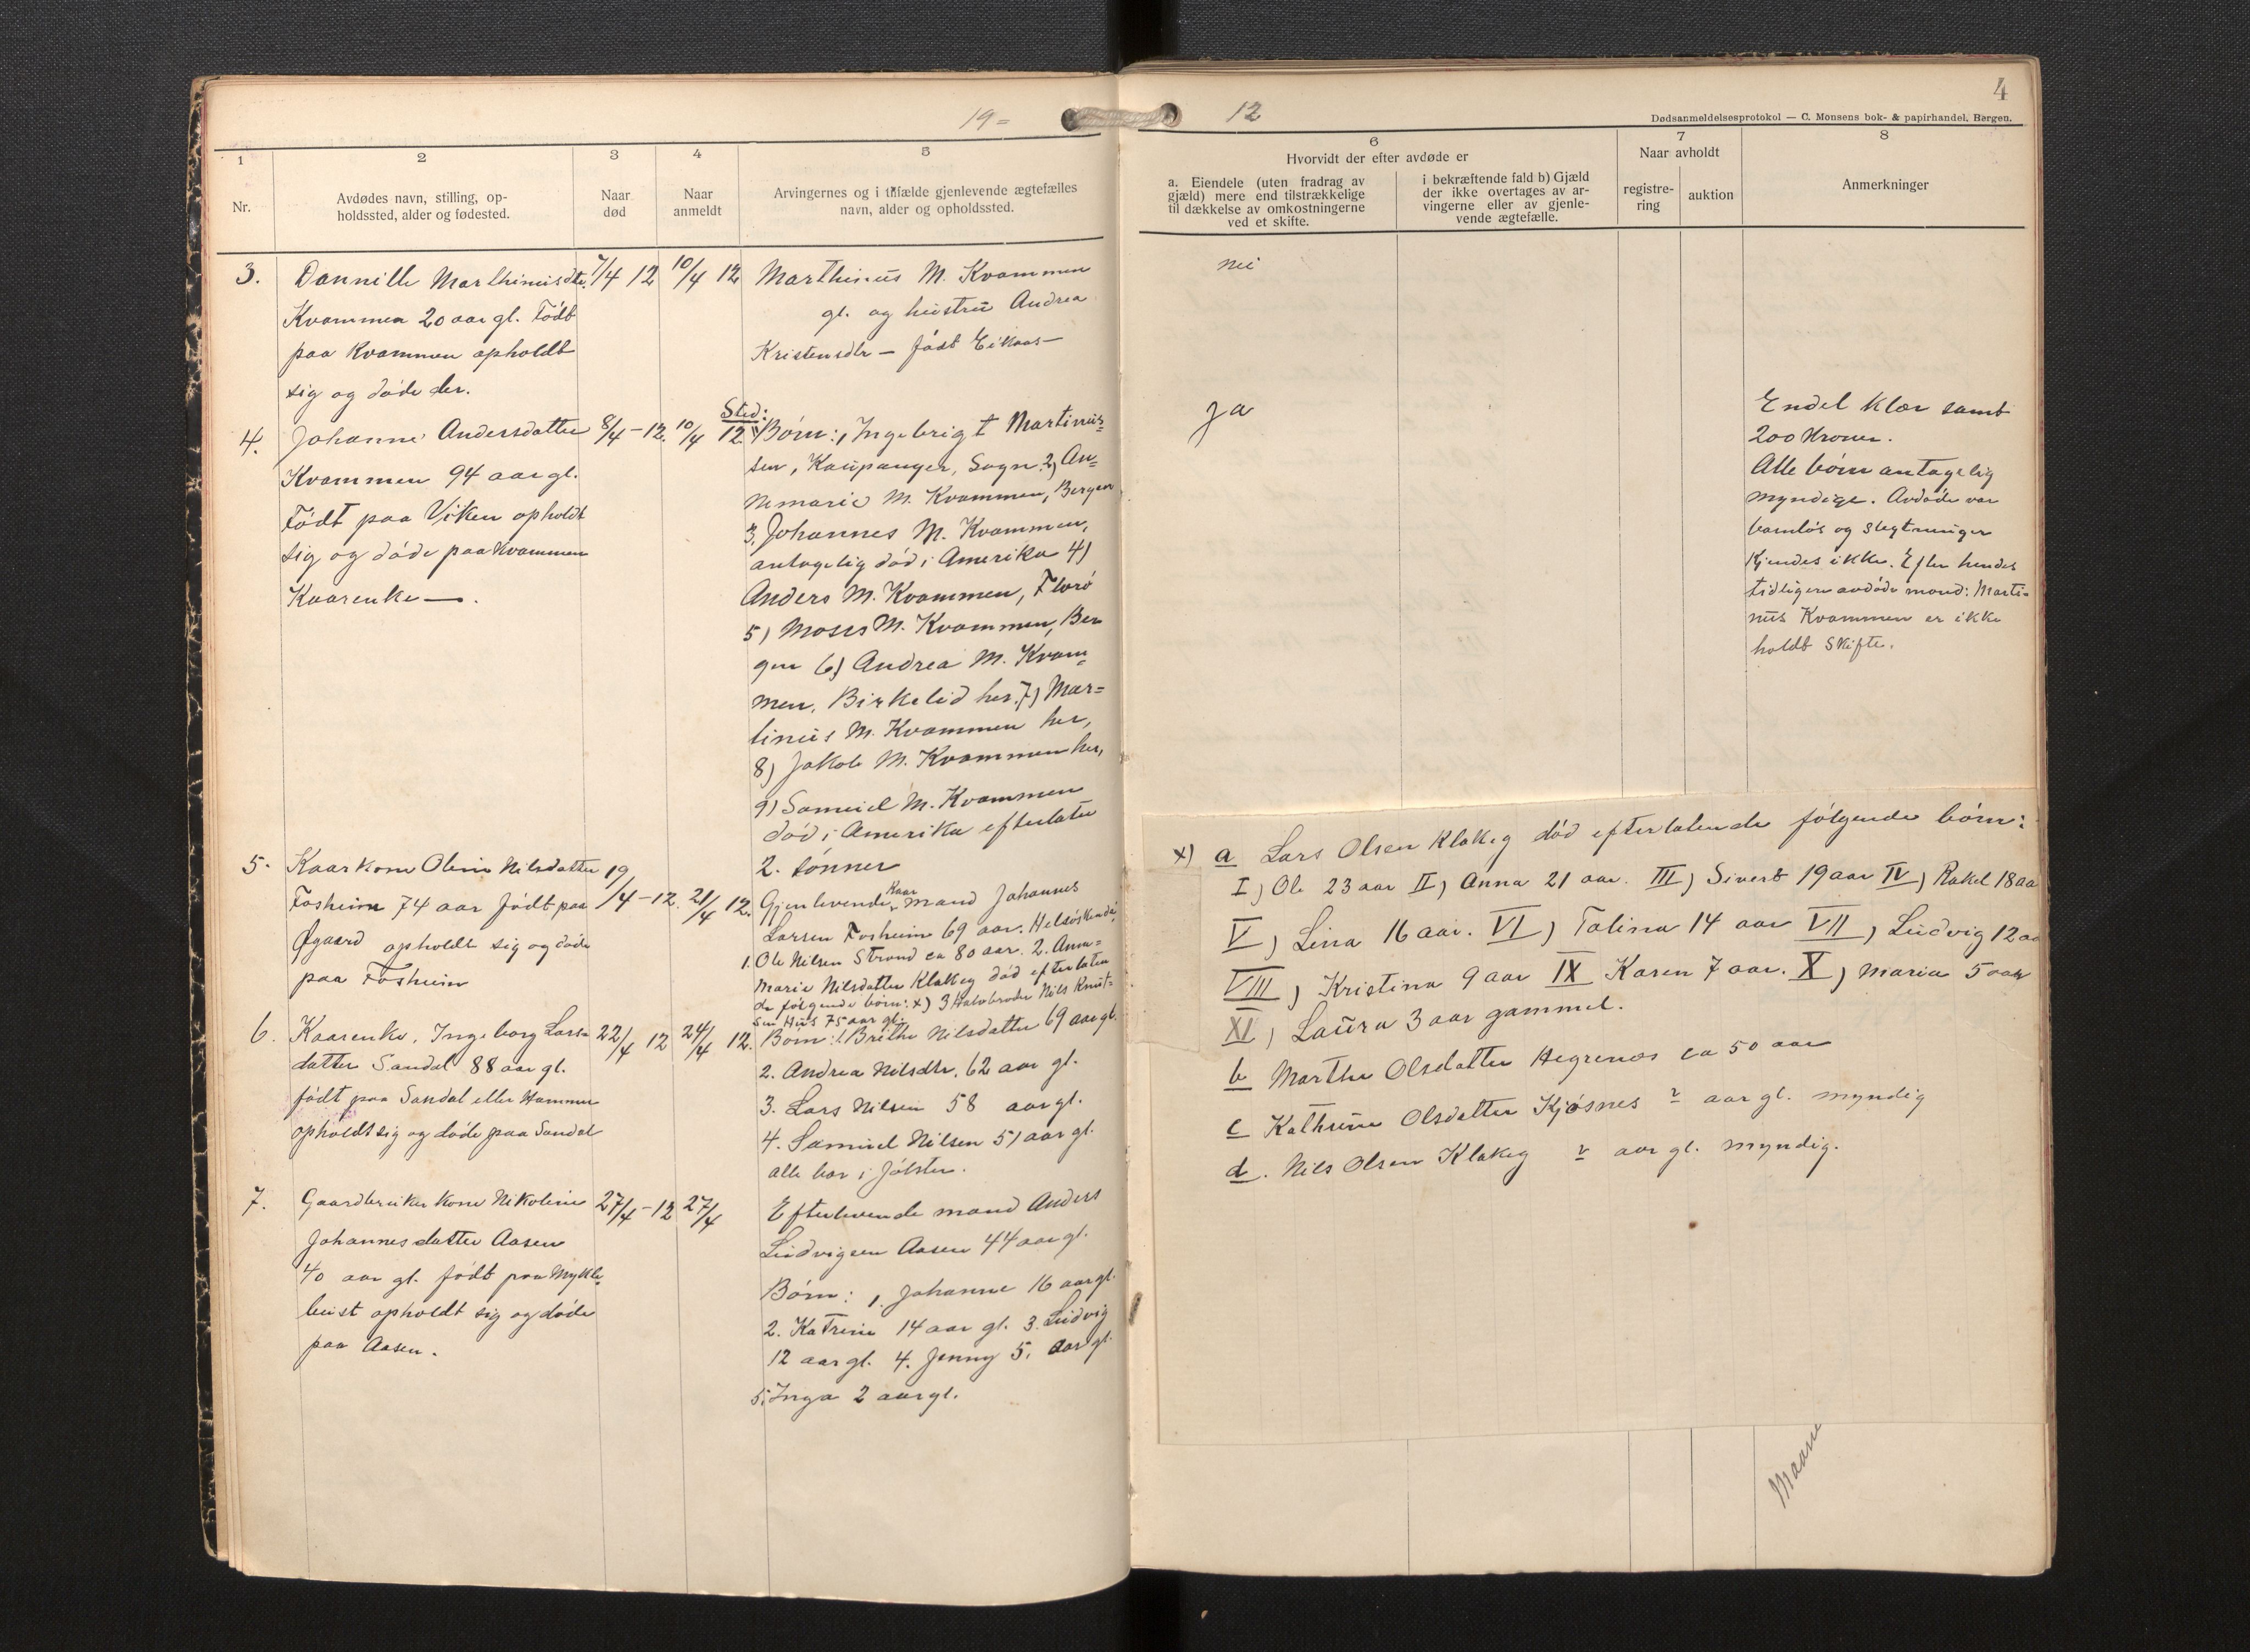 19 =
12
4
Dødsanmeldelsesprotokol — C. Monsens bok- & papirhandel, Bergen.
1
Nr.
2
Avdødes navn, stilling, op-
holdssted, alder og fødested.
3
Naar
død
4
Naar
anmeldt
5
Arvingernes og i tilfælde gjenlevende ægtefælles
navn, alder og opholdssted.
6
Hvorvidt der efter avdøde er
a. Eiendele (uten fradrag av
gjæld) mere end tilstrækkelige
til dækkelse av omkostningerne
ved et skifte.
i bekræftende fald b) Gjæld
der ikke overtages av ar-
vingerne eller av gjenle-
vende ægtefælle.
7
Naar avholdt
registre-
ring
auktion
8
Anmerkninger
3.
Dannille Marthinusdtr.
Kvammen 20 aar gl. Født
paa Kvammen opholdt
sig og døde der.
7/4 12
10/4 12
Marthinus M. Kvammen
gl. og hustru Andrea
Kristensdtr — født Eikaas —
nei
4.
Johanne Andersdatter
Kvammen 94 aar gl.
Født paa Viken opholdt
sig og døde paa Kvammen
Kaarenke —.
8/4 – 12.
10/4 12.
Sted:
Børn: 1, Ingebrigt Martinus-
sen, Kaupanger, Sogn. 2) An-
nemarie M. Kvammen, Bergen
3, Johannes M. Kvammen,
antagelig død i Amerika 4)
Anders M. Kvammen, Florø
5) Moses M. Kvammen, Ber
gen 6) Andrea M. Kvam-
men, Birkelid her. 7) Mar=
tinus M. Kvammen her,
8) Jakob M. Kvammen her,
9) Samuel M. Kvammen
død i Amerika efterlater
2. sønner
ja
Endel klær samt
200 kroner.
Alle børn antagelig
myndige. Avdøde var
barnløs og slegtninger
kjendes ikke. Efter hendes
tidligere avdøde mand: Marti-
nus Kvammen er ikke
holdt skifte.
5.
Kaarkone Oline Nilsdatter
Fosheim 74 aar født paa
Øgaard opholdt sig og døde
paa Fosheim
19/4 – 12.
21/4 12.
Gjenlevende Kaar mand Johannes
Larsen Fosheim 69 aar. Helsøskende:
1. Ole Nilsen Strand ca 80 aar. 2. Anna=
Marie Nilsdatter Klakeg død efterlaten
de følgende børn: x) 3 Halvbroder Nils Knut-
sen Hus 75 aar gl.
6.
Kaarenke. Ingeborg Lars-
datter Sandal 88 aar gl.
født paa Sandal eller Hammer
opholdt sig og døde paa Sandal
22/4 12
24/4 12.
Børn: 1 Brithe Nilsdatter 69 aar gl.
2. Andrea Nilsdtr. 62 aar gl.
3. Lars Nilsen 58 aar gl.
4. Samuel Nilsen 51 aar gl.
alle bor i Jølster.
7.
Gaardbruker kone Nikoline
Johannesdatter Aasen
40 aar gl. født paa Mykle-
bust opholdt sig og døde
paa Aasen.
27/4 – 12
27/4
Efterlevende mand Anders
Ludvigsen Aasen 44 aar gl.
Børn: 1. Johanne 16 aar gl.
2. Katrine 14 aar gl. 3. Ludvig
12 aar gl. 4. Jenny 5. aar gl.
5. Inga 2 aar gl.
x) a Lars Olsen Klakeg død efterlatende følgende børn:
I) Ole 23 aar II) Anna 21 aar. III) Sivert 19 aar IV) Rakel 18 aa
V) Lina 16 aar. VI) Talina 14 aar VII) Ludvig 12 aa
VIII) Kristina 9 aar IX Karen 7 aar. X) Maria 5 aar
XI) Laura 3 aar gammel.
b Marthe Olsdatter Hegrenes ca 50 aar
c Kathrine Olsdatter Kjøsnes ? aar gl. myndig
d. Nils Olsen Klakeg ? aar gl. myndig.